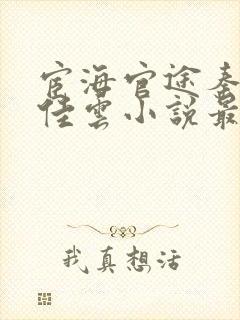 宦海官途
佳雲小說最
我真想活